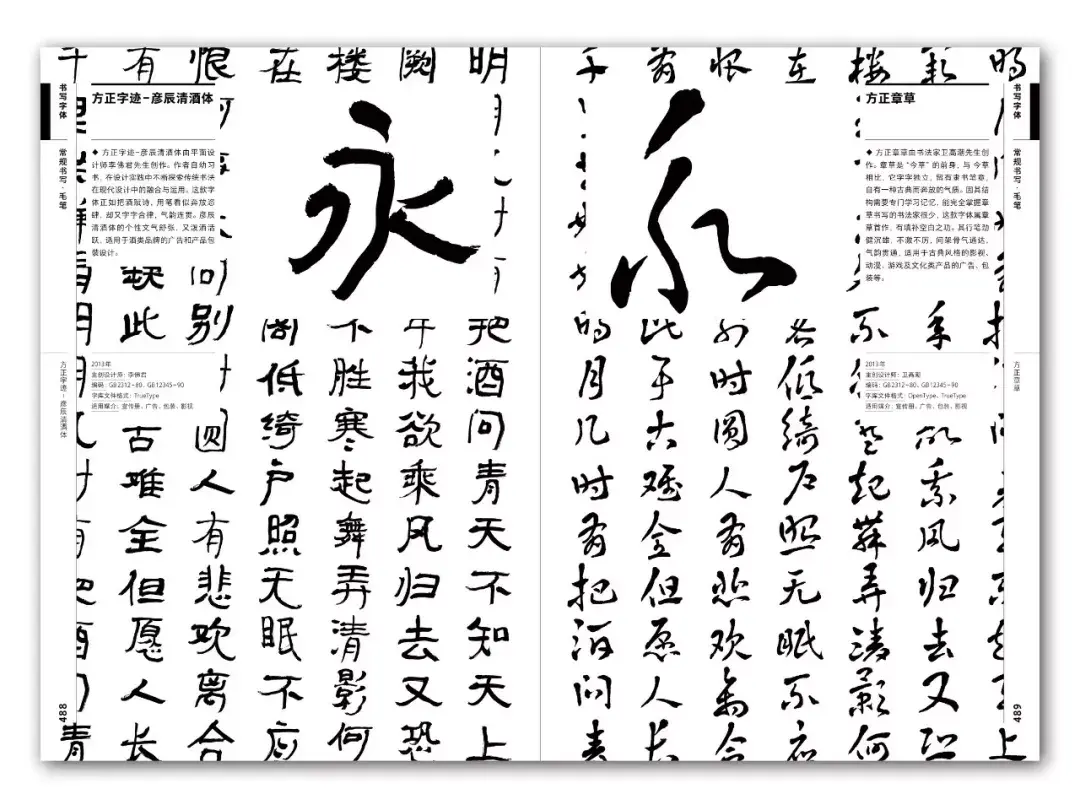 书写字体
常规书写·毛笔
方正字迹-彦辰清酒体
488
方正字迹-彦辰清酒体
◆ 方正字迹-彦辰清酒体由平面设
计师李佛君先生创作。作者自幼习
书，在设计实践中不断探索传统书法
在现代设计中的融合与运用。这款字
体正如把酒赋诗，用笔看似奔放恣
肆，却又字字合律，气韵连贯。彦辰
清酒体的个性文气舒张，又泼洒活
跃，适用于酒类品牌的广告和产品包
装设计。
2013年
原创设计师：李佛君
编码：GB2312-80、GB12345-90
字库文件格式：TrueType
适用媒介：宣传册、广告、包装、影视
永
明
把酒问青天不知天上
阙
年我欲乘风归去又恐
楼
不胜寒起舞弄清影何
在
阁低绮户照无眠不应
恨
向别
圆人有悲欢离合
有
缺此
古难全但愿人长
千
青
方正章草
◆ 方正章草由书法家卫高潮先生创
作。章草是“今草”的前身，与 今草
相比，它字字独立，留有隶书笔意，
自有一种古典而奔放的气质。因其结
构需要专门学习记忆，能完全掌握章
草书写的书法家很少，这款字体属章
草首作，有填补空白之功。其行笔劲
健沉雄，不激不厉，间架骨气通达，
气韵贯通，适用于古典风格的影视、
动漫、游戏及文化类产品的广告、包
装等。
2013年
编码：GB2312-80、GB12345-90
字库文件格式：OpenType、TrueType
适用媒介：宣传册、广告、包装、影视
永
明
上
阙
年
欲乘风归去又恐
楼
不
寒起舞弄清影何
在
低绮户照无眠不应
恨
别时圆人有悲欢离合
有
此事古难全但愿人长
千
明月几时有把酒问青
书写字体
常规书写·毛笔
方正章草
489